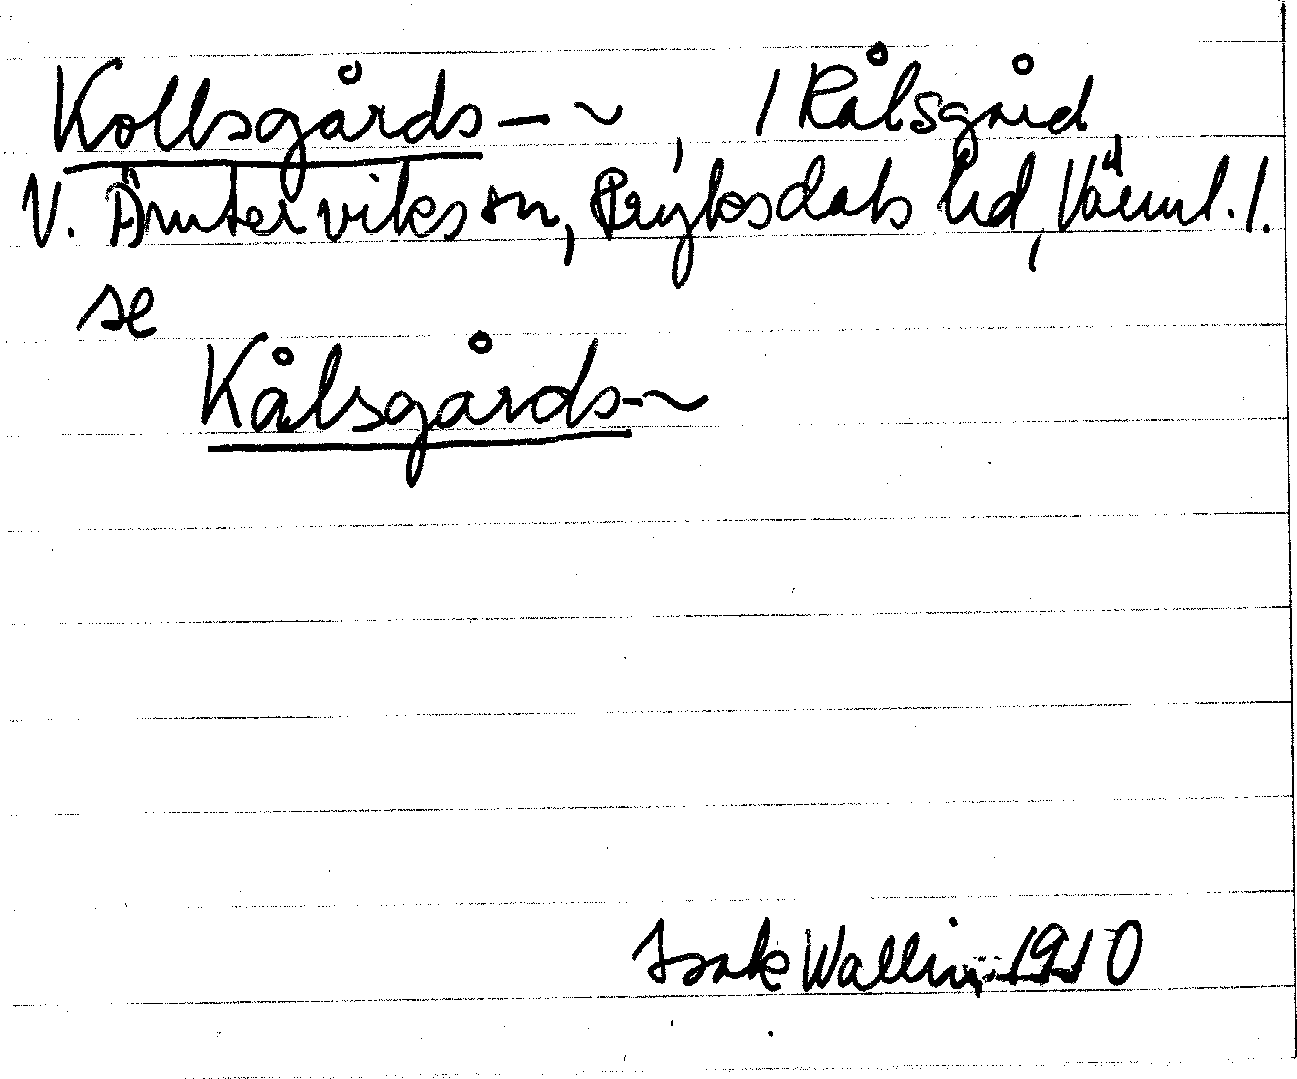 Kollsgårds- ~, / Rålsgård,
V. Ämterviks sn, Fryksdals hd, Värml. /.
se
Kålsgårds- ~
Isak Wallin, 1910